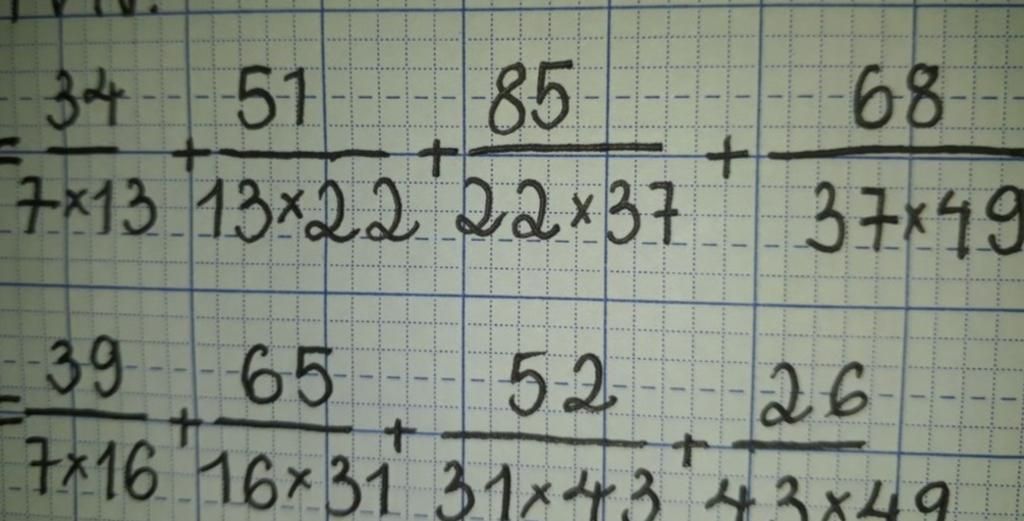 = 34/7×13 + 51/13×22 + 85/22×37 + 68/37×49
= 39/7×16 + 65/16×31 + 52/31×43 + 26/43×49